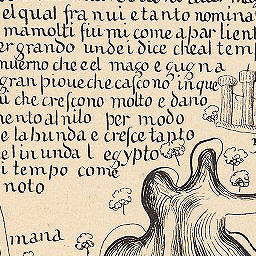 el qual fra nui e tanto nomina
mamolti fiumi come a par lient
per grando unde i dice che al temp
inuerno che e el mago e gugna
gran pioue che cascono in que
ü che crescono molto e dano
mento al nilo per modo
e la bunda e cresce tanto
e l in unda l egypto
i tempo come
noto
mana